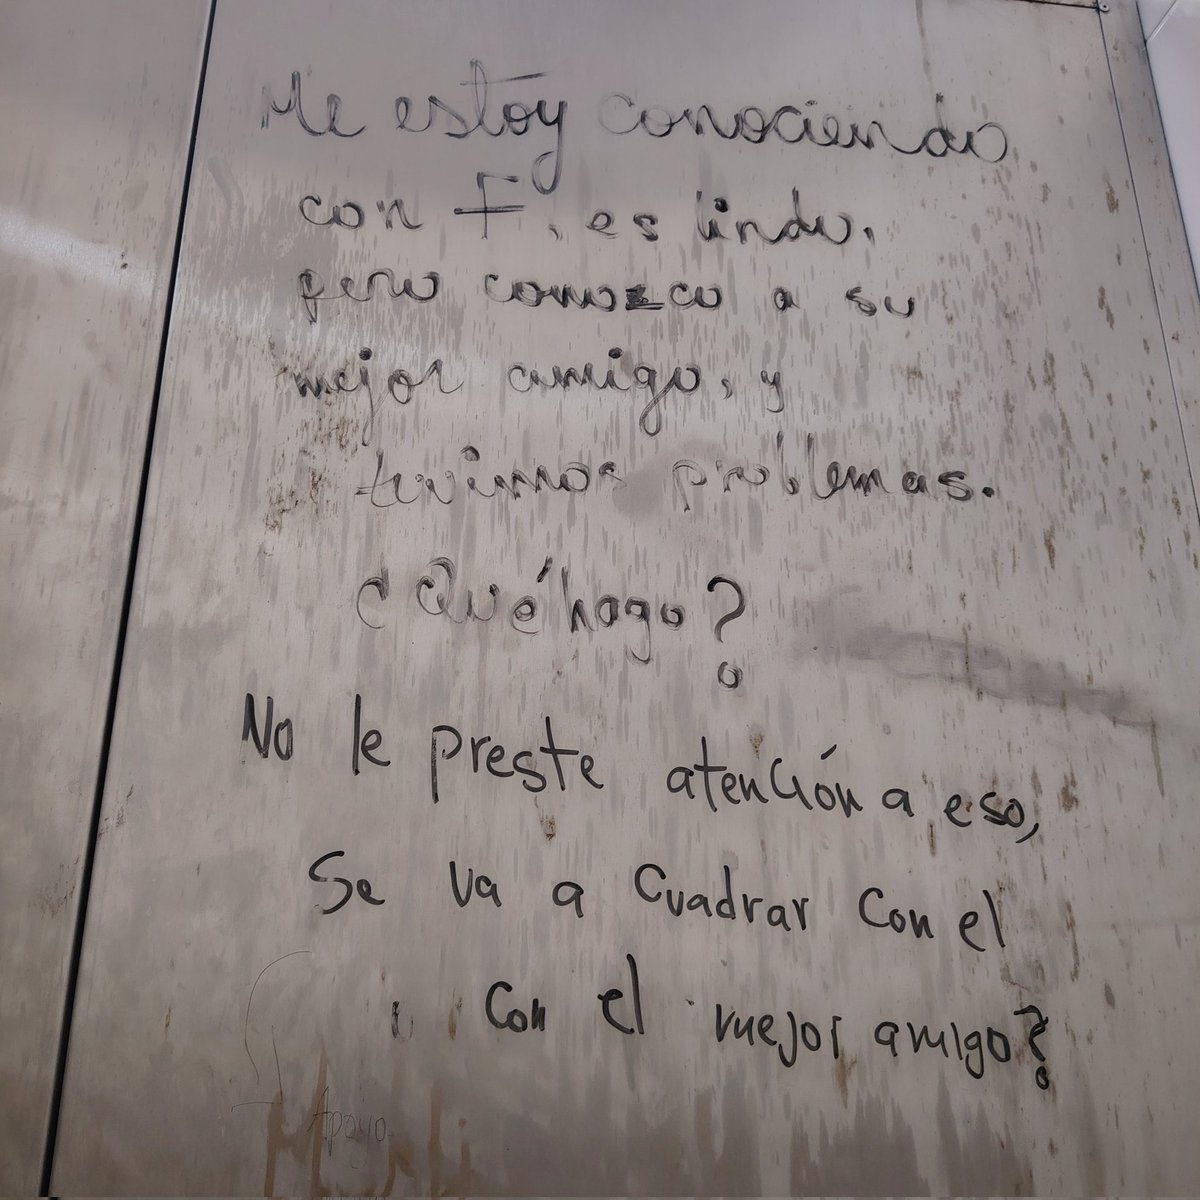 Me estoy conociendo
con F, es lindo,
pero conozco a su
mejor amigo, y
tuvimos problemas.
¿Qué hago?
No le preste atención a eso,
Se va a cuadrar con el
con el mejor amigo?
Apoyo